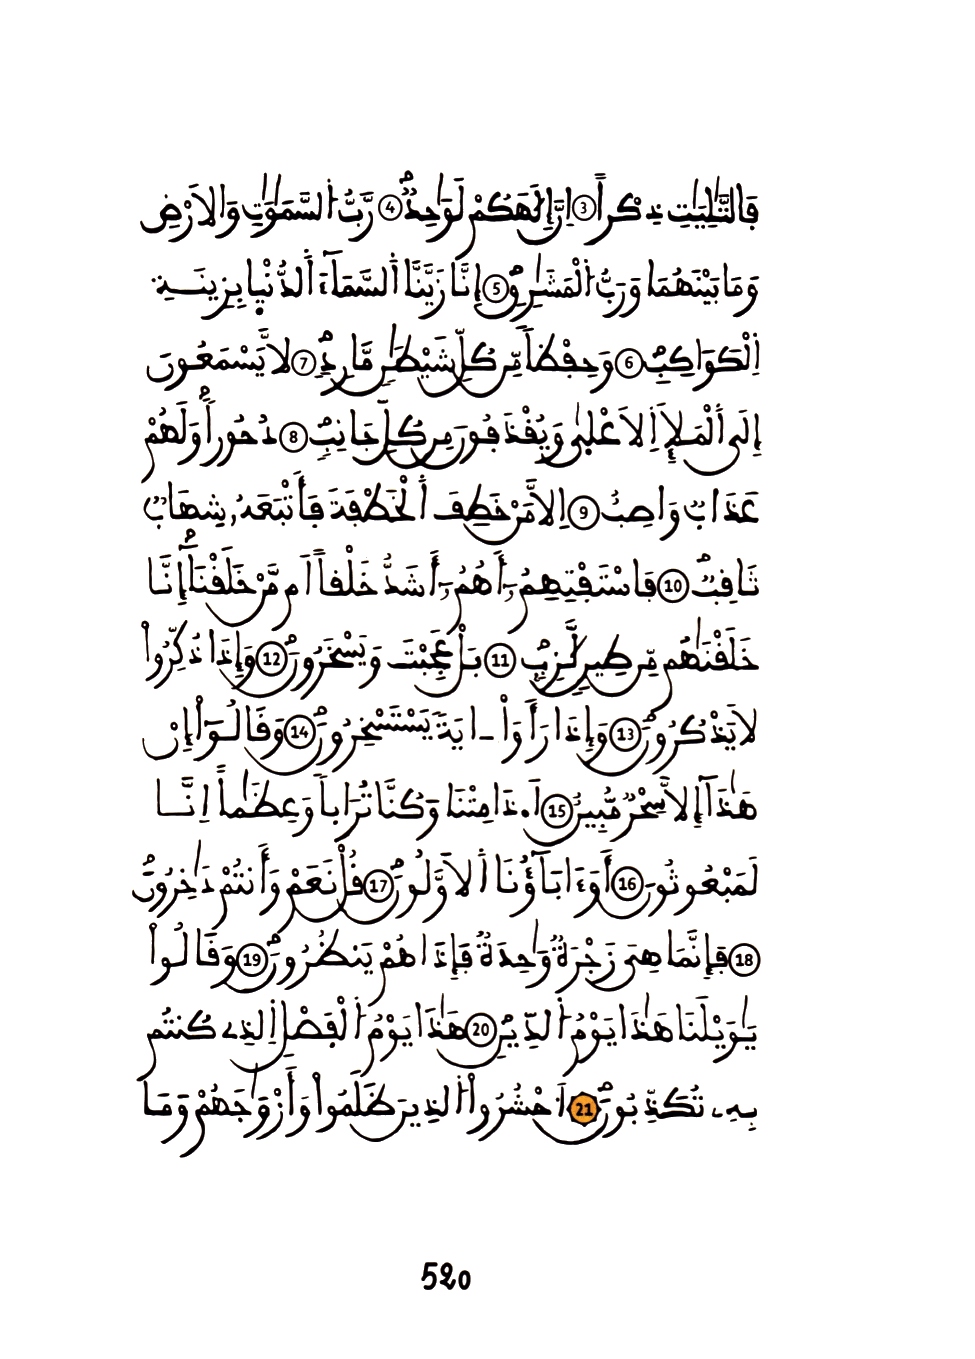 فَالتَّٰلِيَٰتِ ذِكْراً 3 اِنَّ إِلَٰهَكُمْ لَوَٰحِدٌ 4 رَّبُّ اُ۬لسَّمَٰوَٰتِ وَالَارْضِ
وَمَا بَيْنَهُمَا وَرَبُّ اُ۬لْمَشَٰرِقِ 5 إِنَّا زَيَّنَّا اَ۬لسَّمَآءَ اَ۬لدُّنْي۪ا بِزِينَةِ
اِ۬لْكَوَاكِبِ 6 وَحِفْظاٗ مِّن كُلِّ شَيْطَٰنٖ مَّارِدٖ 7 لَّا يَسْمَعُونَ
إِلَى اَ۬لْمَلَإِ اِ۬لَاعْل۪يٰ وَيُقْذَفُونَ مِن كُلِّ جَانِبٖ 8 دُحُوراٗ وَلَهُمْ
عَذَابٞ وَاصِبٌ 9 اِلَّا مَنْ خَطِفَ اَ۬لْخَطْفَةَ فَأَتْبَعَهُۥ شِهَابٞ
ثَاقِبٞ 10 فَاسْتَفْتِهِمُۥٓ أَهُمُۥٓ أَشَدُّ خَلْقاً اَم مَّنْ خَلَقْنَآ إِنَّا
خَلَقْنَٰهُم مِّن طِينٖ لَّازِبِۢ 11 بَلْ عَجِبْتَ وَيَسْخَرُونَ 12 وَإِذَا ذُكِّرُواْ
لَا يَذْكُرُونَ 13 وَإِذَا رَأَوَاْ ا۟يَةٗ يَسْتَسْخِرُونَ 14 وَقَالُوٓاْ إِنْ
هَٰذَآ إِلَّا سِحْرٞ مُّبِينٌ 15 اَ.ذَا مِتْنَا وَكُنَّا تُرَاباٗ وَعِظَٰماً اِنَّا
لَمَبْعُوثُونَ 16 أَوَءَابَآؤُنَا اَ۬لَاوَّلُونَ 17 قُلْ نَعَمْ وَأَنتُمْ دَٰخِرُونَ
18 فَإِنَّمَا هِيَ زَجْرَةٞ وَٰحِدَةٞ فَإِذَا هُمْ يَنظُرُونَ 19 وَقَالُواْ
يَٰوَيْلَنَا هَٰذَا يَوْمُ اُ۬لدِّينِ 20 هَٰذَا يَوْمُ اُ۬لْفَصْلِ اِ۬لذِے كُنتُم
بِهِۦ تُكَذِّبُونَ 21 اَ۟حْشُرُواْ اُ۬لذِينَ ظَلَمُواْ وَأَزْوَٰجَهُمْ وَمَا
520